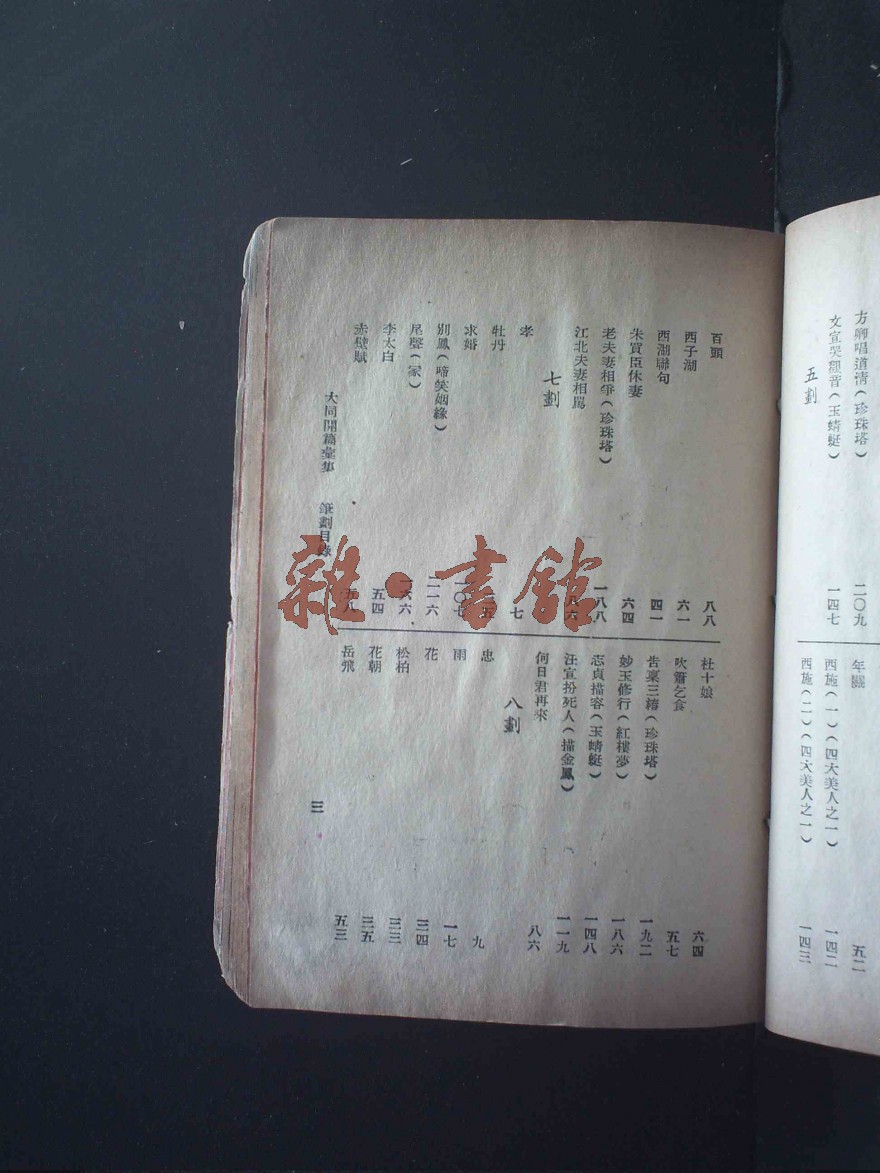 方卿唱道情(珍珠塔) 二〇九
文宣哭觀音(玉蜻蜓) 一四七
五劃
年關 五二
西施(一)(四大美人之一) 一四二
西施(二)(四大美人之一) 一四三
百頭 八八
西子湖 六一
西湖聯句 四一
朱買臣休妻 六四
老夫妻相爭(珍珠塔) 一八八
江北夫妻相罵
七劃
孝 七
牡丹
求婚 一〇七
別鳳(啼笑姻緣) 二一六
尾聲(家) 一六六
李太白 五四
赤壁賦 五八
杜十娘 六四
吹簫乞食 五七
告稟三樁(珍珠塔) 一九二
妙玉修行(紅樓夢) 一八六
志貞描容(玉蜻蜓) 一四八
汪宣扮死人(描金鳳) 一一九
何日君再來 八六
八劃
忠 九
雨 一七
花 三四
松柏 三三
花朝 三五
岳飛 五三
大同開篇彙集 筆劃目錄 三
雜·書館